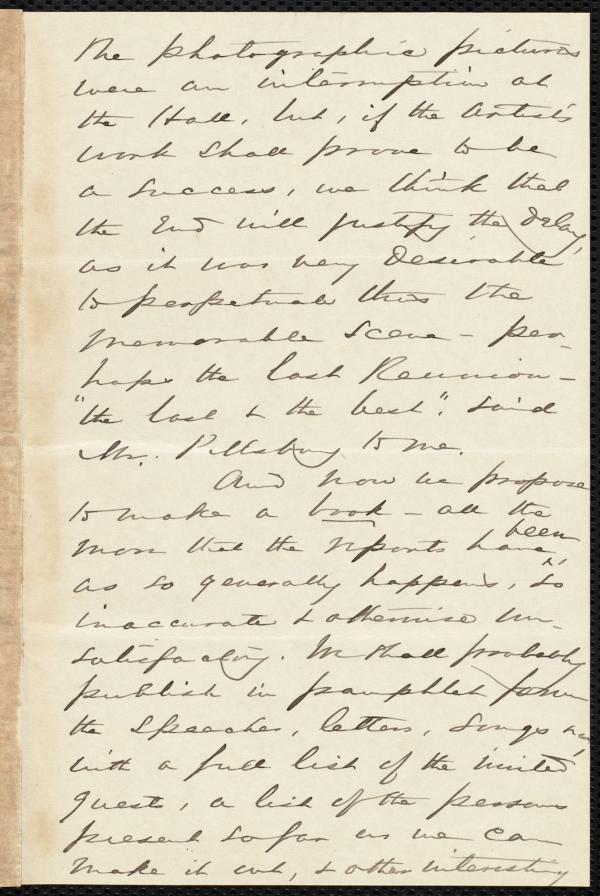 The photographic pictures
were an interruption at
the Hall, but, if the Artist's
work shall prove to be
a success, we think that
the End will justify the Delay,
as it was very Desirable
to perpetuate thus the
memorable scene – per-
haps the last Reunion –
"the last & the best", said
Mr. Pillsbury to me.
And now we propose
to make a book – all the
more that the reports have been
as so generally happens, so
inaccurate & otherwise un-
satisfactory. We shall probably
publish in pamphlet form
the Speeches, letters, songs
with a full list of the invited
guests, a list of the persons
present so far as we can
make it out, & other interesting